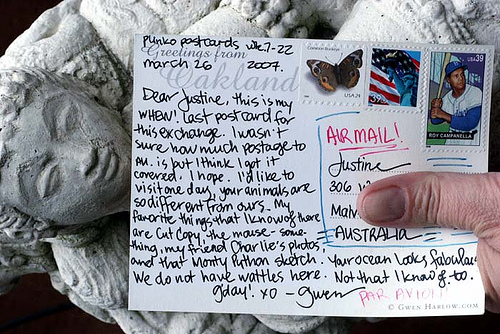 Punko postcards wk 7-22
Greetings from
Oakland
march 26 2007.
Dear Justine, this is my
WHEW! last postcard for
this exchange. I wasn't
sure how much postage to
Au. is put I think I got it
covered. I hope. I'd like to
visit one day, your animals are
so different from ours. My
favorite things that I know of there
are Cut Copy, the mouse-some-
thing, my friend Charlie's photos,
and that Monty Python sketch. Your ocean looks fabulous.
We do not have wattles here. Not that I know of. to.
g'day! xo - Gwen
Common Buckeye
USA 24
39
USA 39
ROY CAMPANELLA
AIRMAIL!
Justine
306
AUSTRALIA
PAR AVION
© GWEN HARLOW.COM